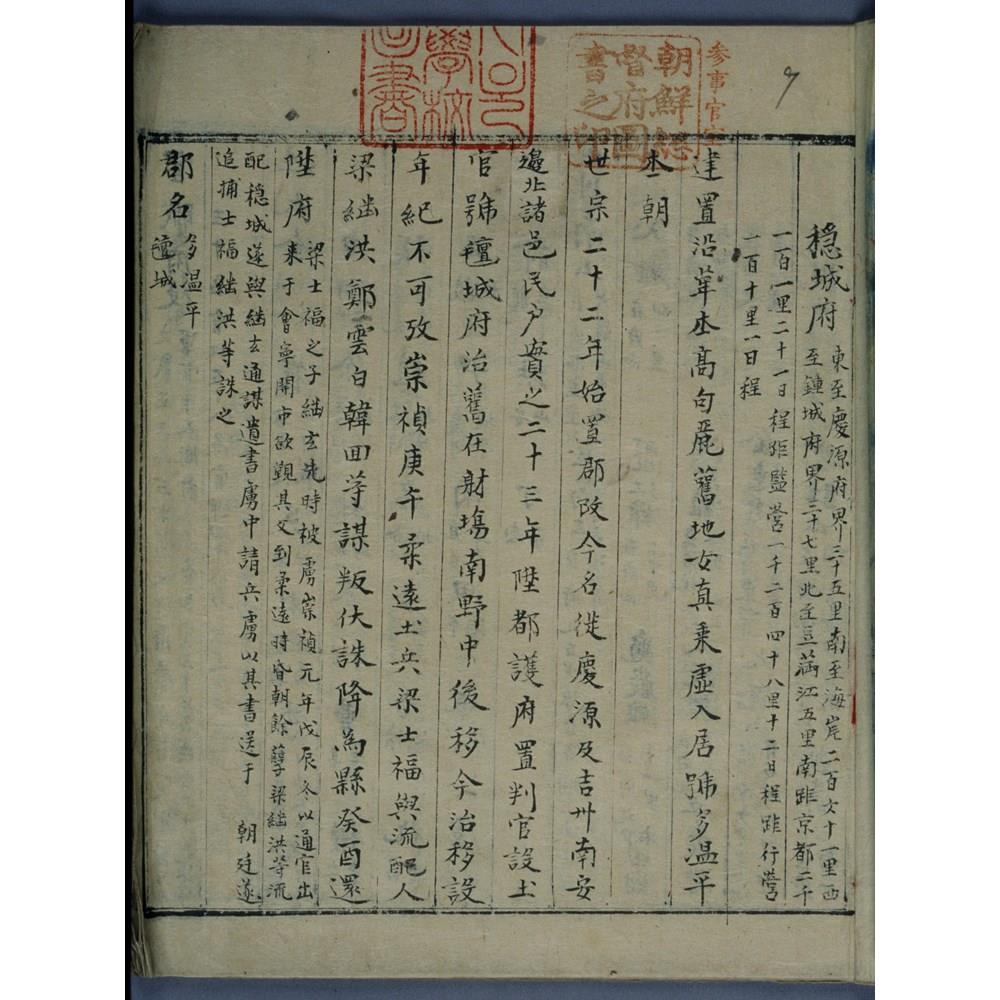 參事官室
朝鮮總
督府圖
書之印
學校
圖書
穩城府
東至慶源府界三十五里南至海岸二百六十一里西
至鍾城府界三十七里北至豆滿江五里南距京都二千
一百一里二十一日程距監營一千二百四十八里十二日程距行營
一百十里一日程
建置沿革本高句麗舊地女真乘虛入居號多溫平
本朝
世宗二十二年始置郡改今名徙慶源及吉州南安
邊北諸邑民戶實之二十三年陞都護府置判官設土
官號氊城府治舊在射場南野中後移今治移設
年紀不可攷崇禎庚午柔遠土兵梁士福與流配人
梁繼洪鄭雲白韓回等謀叛伏誅降為縣癸酉還
陞府
梁士福之子繼玄先時被虜崇禎元年戊辰冬以通官出
来于會寧開市欲覲其父到柔遠時昏朝餘孽梁繼洪等流
配穩城遂與繼玄通謀遺書虜中請兵虜以其書送于 朝廷遂
追捕士福繼洪等誅之
郡名
多溫平
氊城